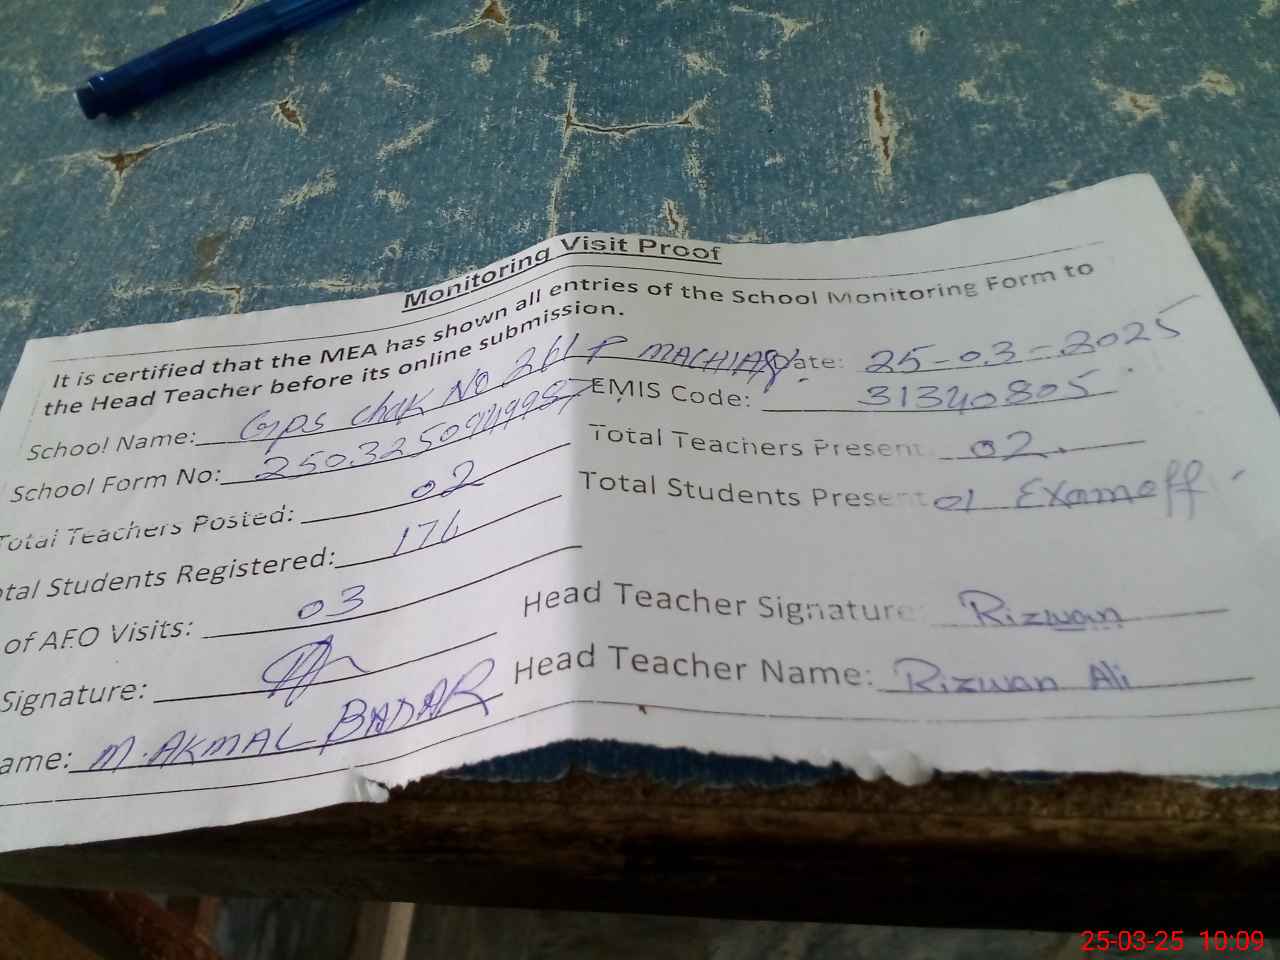 Monitoring Visit Proof
It is certified that the MEA has shown all entries of the School Monitoring Form to
the Head Teacher before its online submission.
School Name: GPS Chak No 261 P MACHIAN Date: 25-03-2025
School Form No: EMIS Code: 31340805
Total Teachers Posted: 02 Total Teachers Present: 02
otal Students Registered: 176 Total Students Present 01 Exam off
of AEO Visits: 03
Signature: Head Teacher Signature: Rizwan
ame: M. AKMAL BADAR Head Teacher Name: Rizwan Ali
25-03-25 10:09